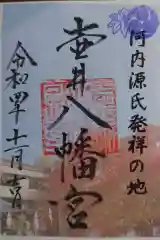 河内源氏発祥の地
壺井八幡宮
令和四年十一月十一日